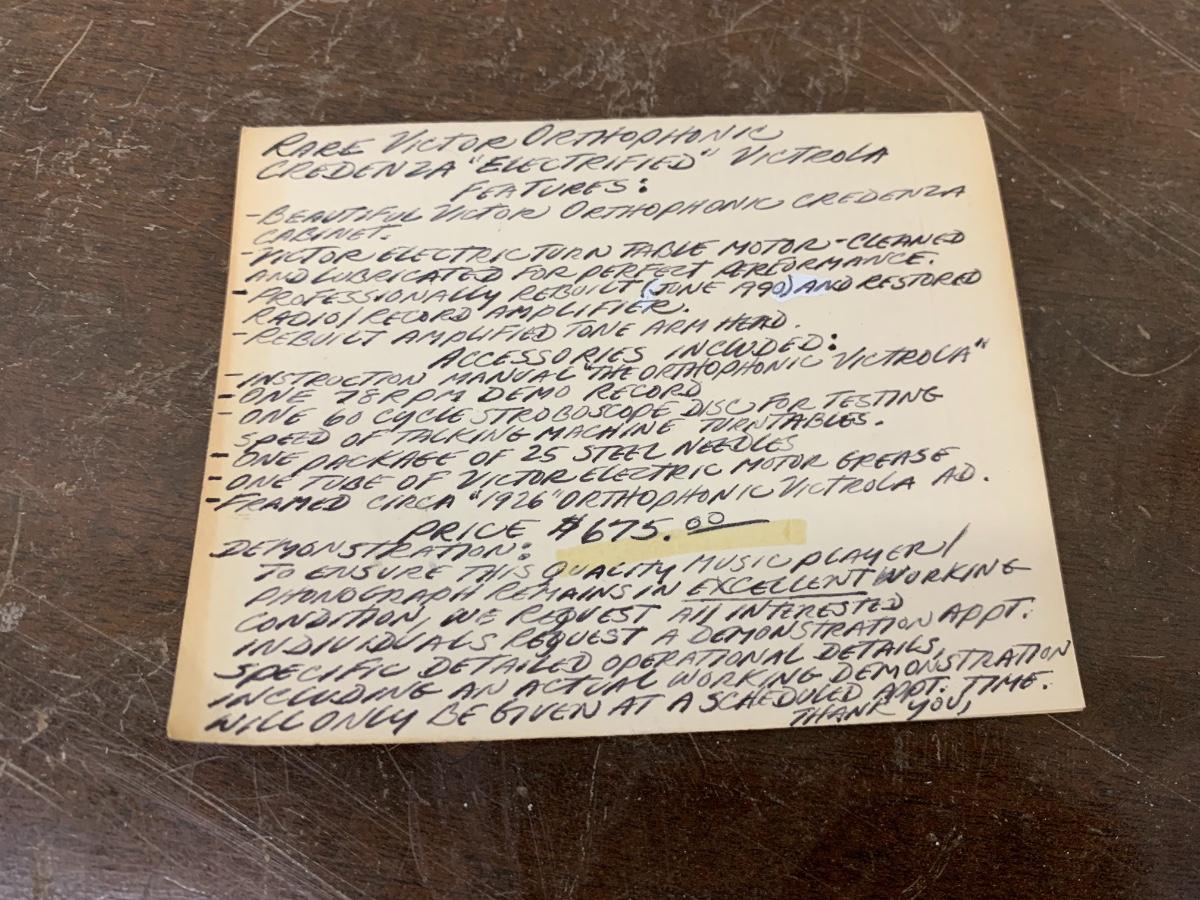 RARE VICTOR ORTHOPHONIC
CREDENZA "ELECTRIFIED" VICTROLA
FEATURES:
-BEAUTIFUL VICTOR ORTHOPHONIC CREDENZA
CABINET.
-VICTOR ELECTRIC TURN TABLE MOTOR-CLEANED
AND LUBRICATED FOR PERFECT PERFORMANCE.
-PROFESSIONALLY REBUILT (JUNE 1990) AND RESTORED
RADIO/RECORD AMPLIFIER.
-REBUILT AMPLIFIED TONE ARM HEAD.
ACCESSORIES INCLUDED:
-INSTRUCTION MANUAL "THE ORTHOPHONIC VICTROLA"
-ONE 78 RPM DEMO RECORD
-ONE 60 CYCLE STROBOSCOPE DISC FOR TESTING
SPEED OF TALKING MACHINE TURNTABLES.
-ONE PACKAGE OF 25 STEEL NEEDLES
-ONE TUBE OF VICTOR ELECTRIC MOTOR GREASE
-FRAMED CIRCA "1926" ORTHOPHONIC VICTROLA AD.
PRICE $675.00
DEMONSTRATION:
TO ENSURE THIS QUALITY MUSIC PLAYER/
PHONOGRAPH REMAINS IN EXCELLENT WORKING
CONDITION, WE REQUEST All INTERESTED
INDIVIDUALS REQUEST A DEMONSTRATION APPT.
SPECIFIC DETAILED OPERATIONAL DETAILS,
INCLUDING AN ACTUAL WORKING DEMONSTRATION
WILL ONLY BE GIVEN AT A SCHEDULED APPT. TIME.
THANK YOU,